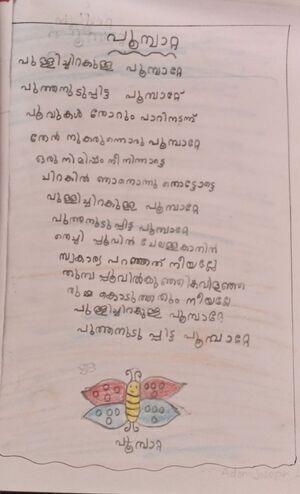 പൂമ്പാറ്റ
പുള്ളിച്ചിറകുള്ള പൂമ്പാറ്റേ
പുത്തനുടുപ്പിട്ട പൂമ്പാറ്റേ
പൂവുകൾ തോറും പാറിനടന്ന്
തേൻ നുകരുന്നൊരു പൂമ്പാറ്റേ
ഒരു നിമിഷം നീ നിന്നാട്ടെ
ചിറകിൽ ഞാനൊന്നു തൊട്ടോട്ടെ
പുള്ളിച്ചിറകുള്ള പൂമ്പാറ്റേ
പുത്തനുടുപ്പിട്ട പൂമ്പാറ്റേ
തെച്ചി പൂവിൻ ചേലുള്ളകാതിൽ
സ്വകാര്യ പറഞ്ഞത് നീയല്ലേ
തുമ്പ പൂവിൻ
കൊടുത്തതും നീയല്ലേ
പുള്ളിച്ചിറകുള്ള പൂമ്പാറ്റേ
പുത്തനുടുപ്പിട്ട പൂമ്പാറ്റേ
പൂമ്പാറ്റ
Aden Joseph